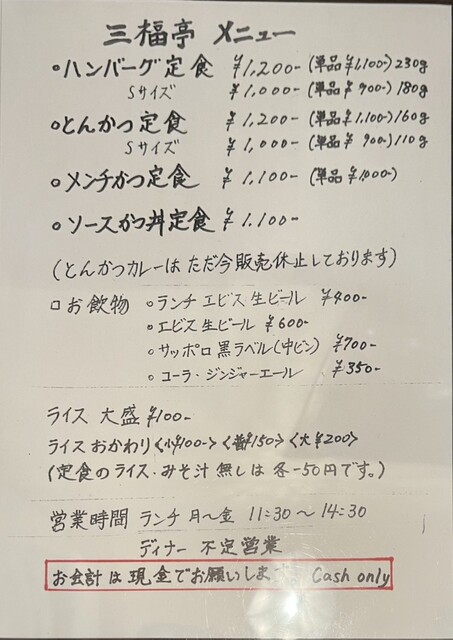 三福亭 メニュー
○ハンバーグ定食 ¥1,200- (単品¥1,100-) 230g
Sサイズ ¥1,000- (単品¥900-) 180g
○とんかつ定食 ¥1,200- (単品¥1,100-) 160g
Sサイズ ¥1,000- (単品¥900-) 110g
○メンチかつ定食 ¥1,100- (単品¥1,000-)
○ソースかつ丼定食 ¥1,100-
(とんかつカレーはただ今販売休止しております)
□お飲物 ○ランチ エビス生ビール ¥400-
○エビス生ビール ¥600-
○サッポロ黒ラベル(中ビン) ¥700-
○コーラ・ジンジャーエール ¥350-
ライス 大盛 ¥100-
ライスおかわり <小¥100-> <普¥150> <大¥200>
(定食のライス・みそ汁無しは各-50円です。)
営業時間 ランチ 月〜金 11:30〜14:30
ディナー 不定営業
お会計は現金でお願いします。 Cash only